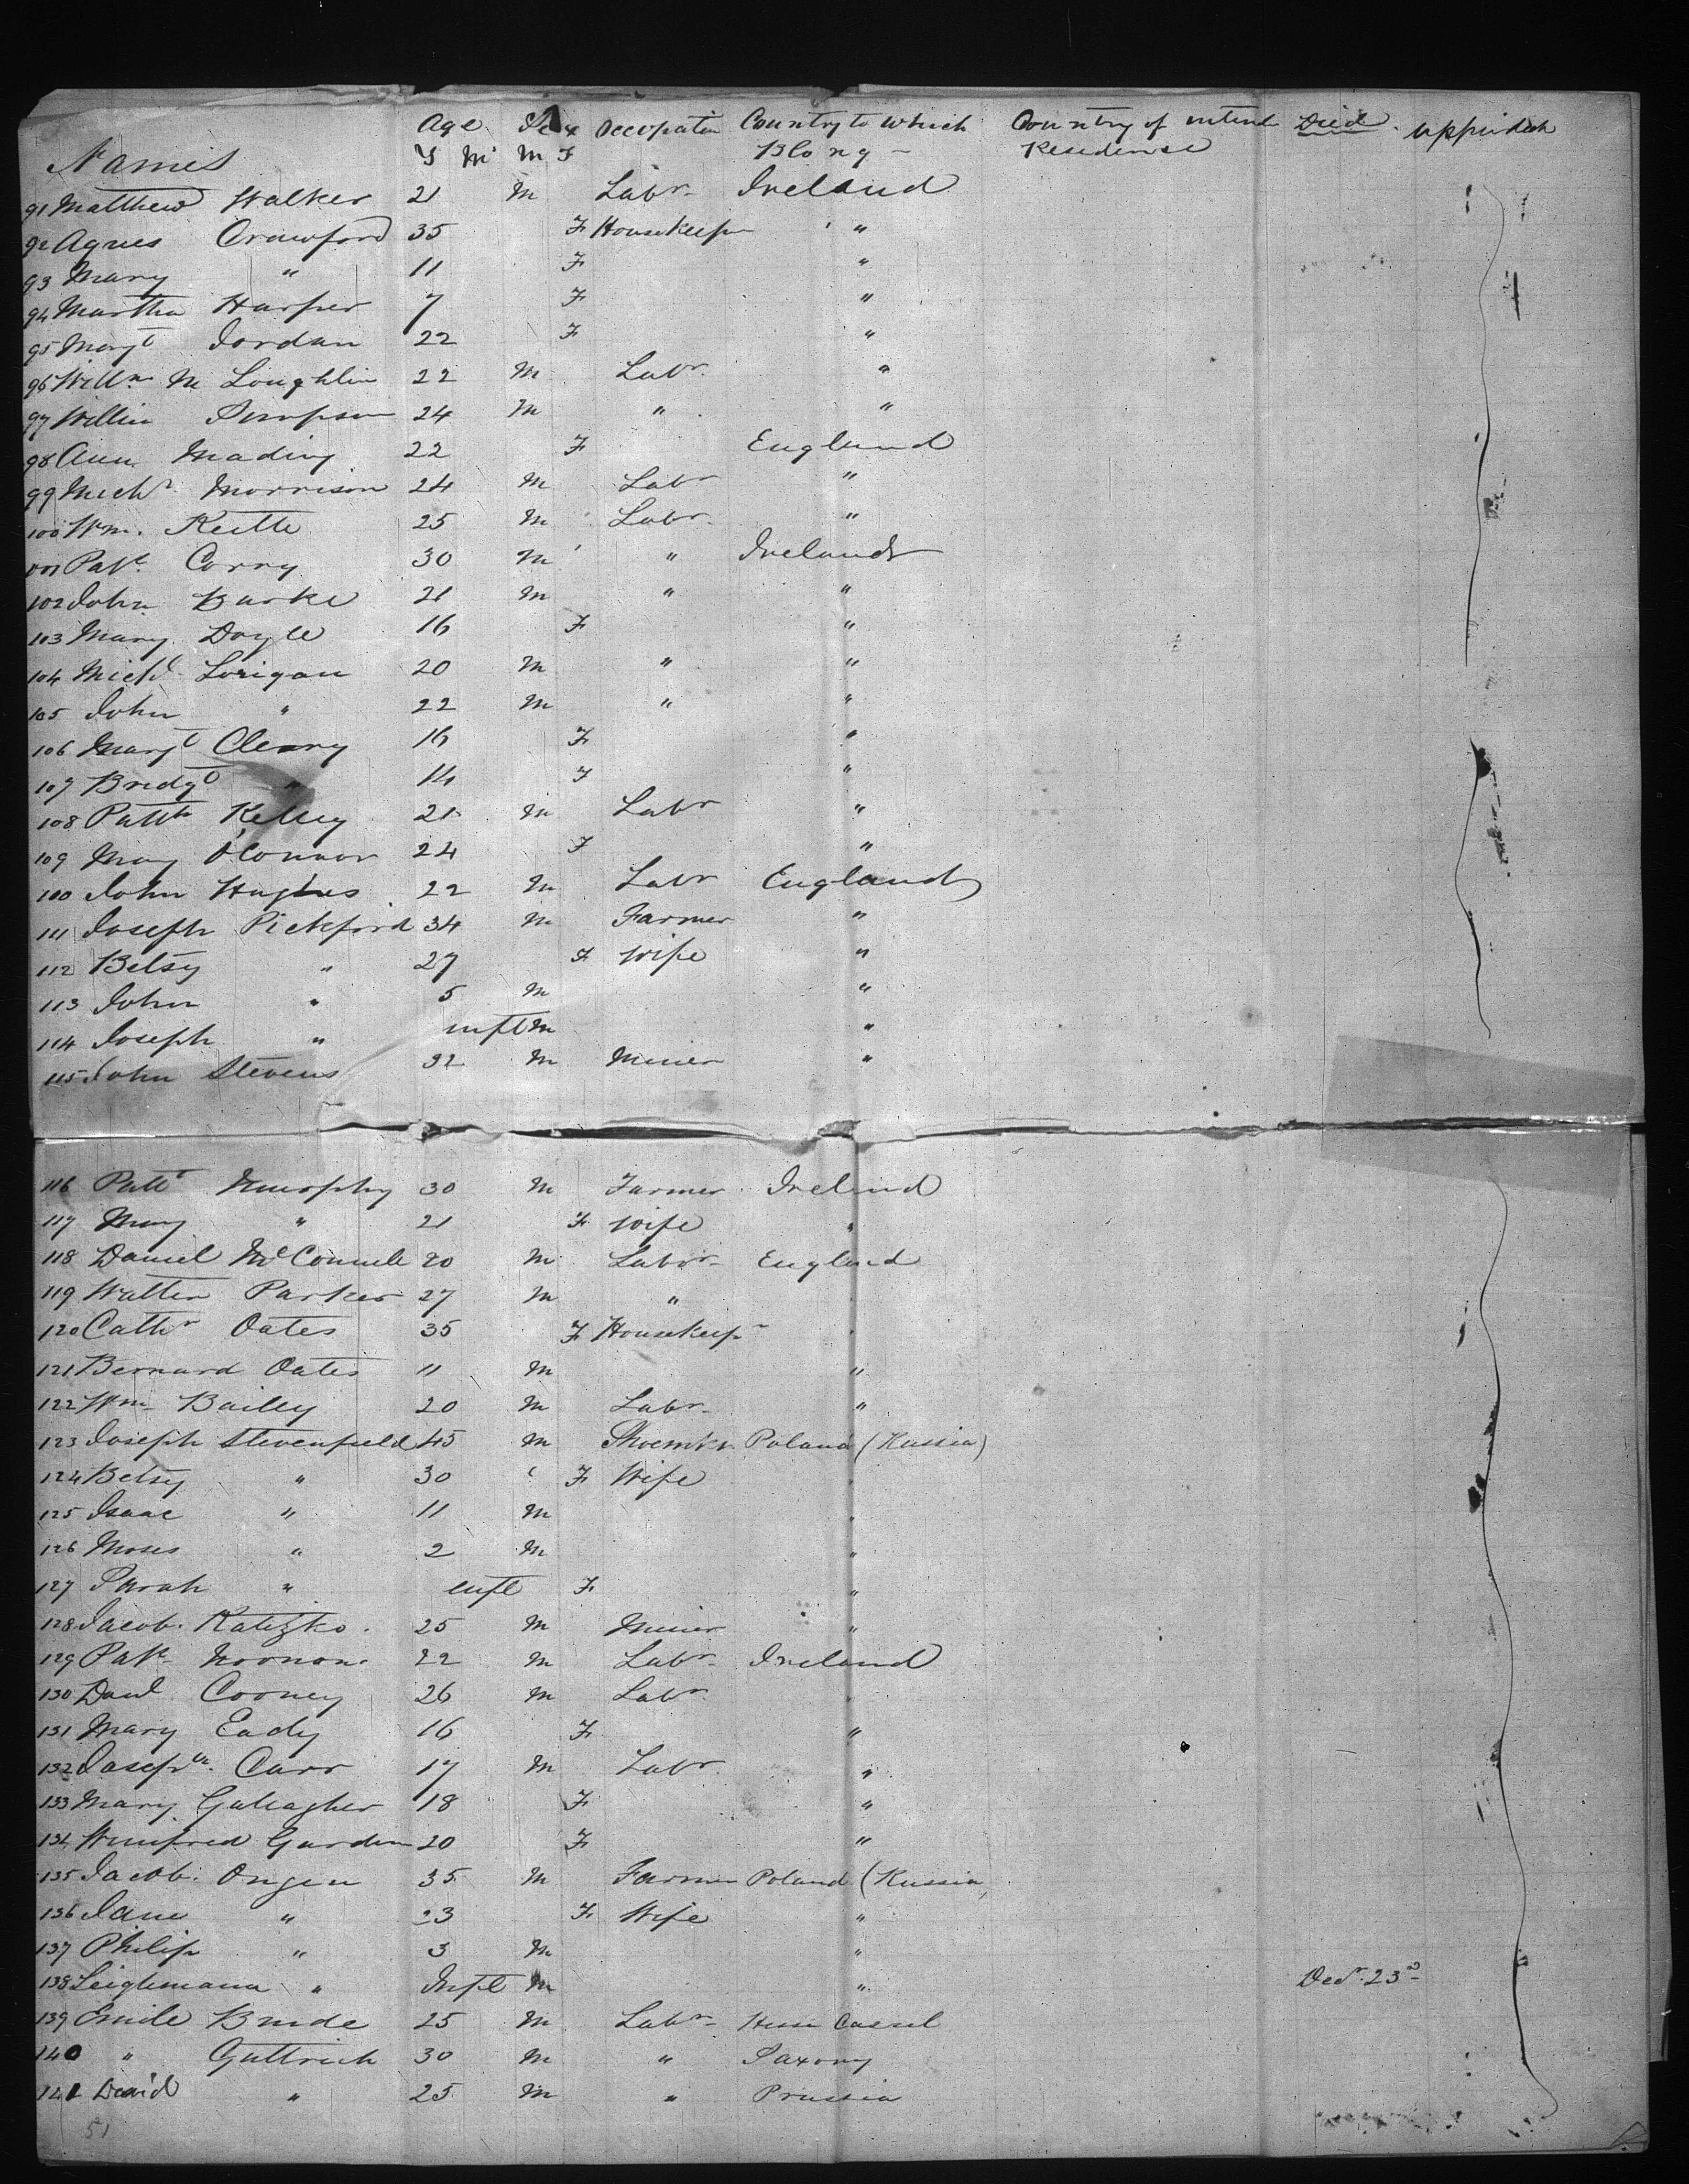 Age Sex Occupation Country to which Country of intend Died upperdeck
Names Y M M F Blong - Residense
91 Matthew Walker 21 M Labr Ireland
92 Agnes Crawford 35 F Housekeepr "
93 Mary " 11 F "
94 Martha Harper 7 F "
95 Margt Jordan 22 F "
96 Willm Mc Loughlin 22 M Labr "
97 Willm Simpson 24 M " "
98 Ann Mading 22 F England
99 Michl Morrison 24 M Labr "
100 Wm. Keitte 25 M Labr "
101 Patk Corry 30 M " Ireland
102 John Burke 21 M " "
103 Mary Doyle 16 F "
104 Michl Lorigan 20 M " "
105 John " 22 M " "
106 Margt Cleary 16 F "
107 Bridgt " 14 F "
108 Pattk Kelley 21 M Labr "
109 Mary O'Connor 24 F "
100 John Hughes 22 M Labr England
111 Joseph Pickford 34 M Farmer "
112 Betsy " 27 F wife "
113 John " 5 M "
114 Joseph " inft M "
115 John Stevens 32 M Miner "
116 Patt Murphy 30 M Farmer Ireland
117 Mary " 21 F wife "
118 Daniel McConnele 20 M Labor England
119 Walter Parker 27 M " "
120 Cathr Oates 35 F Housekeepr "
121 Bernard Oates 11 M "
122 Wm Bailey 20 M Labr "
123 Joseph Stevenfield 45 M Shoemkr Poland (Russia)
124 Betsy " 30 F Wife "
125 Isaac " 11 M "
126 Moses " 2 M "
127 Sarah " inft F "
128 Jacob Ratizko 25 M Miner "
129 Patk Noonon 22 M Labr Ireland
130 Danl Cooney 26 M Labr "
131 Mary Eady 16 F "
132 Joseph Carr 17 M Labr "
133 Mary Galeagher 18 F "
134 Winifred Garden 20 F "
135 Jacob Ongen 35 M Farmer Poland (Russia
136 Jane " 23 F Wife "
137 Philip " 3 M "
138 Leighmann " Inft M " Decr 23d
139 Emile Brude 25 M Labr Hesse Cassel
140 " Guttrich 30 M " Saxony
141 David " 25 M " Prussia
51